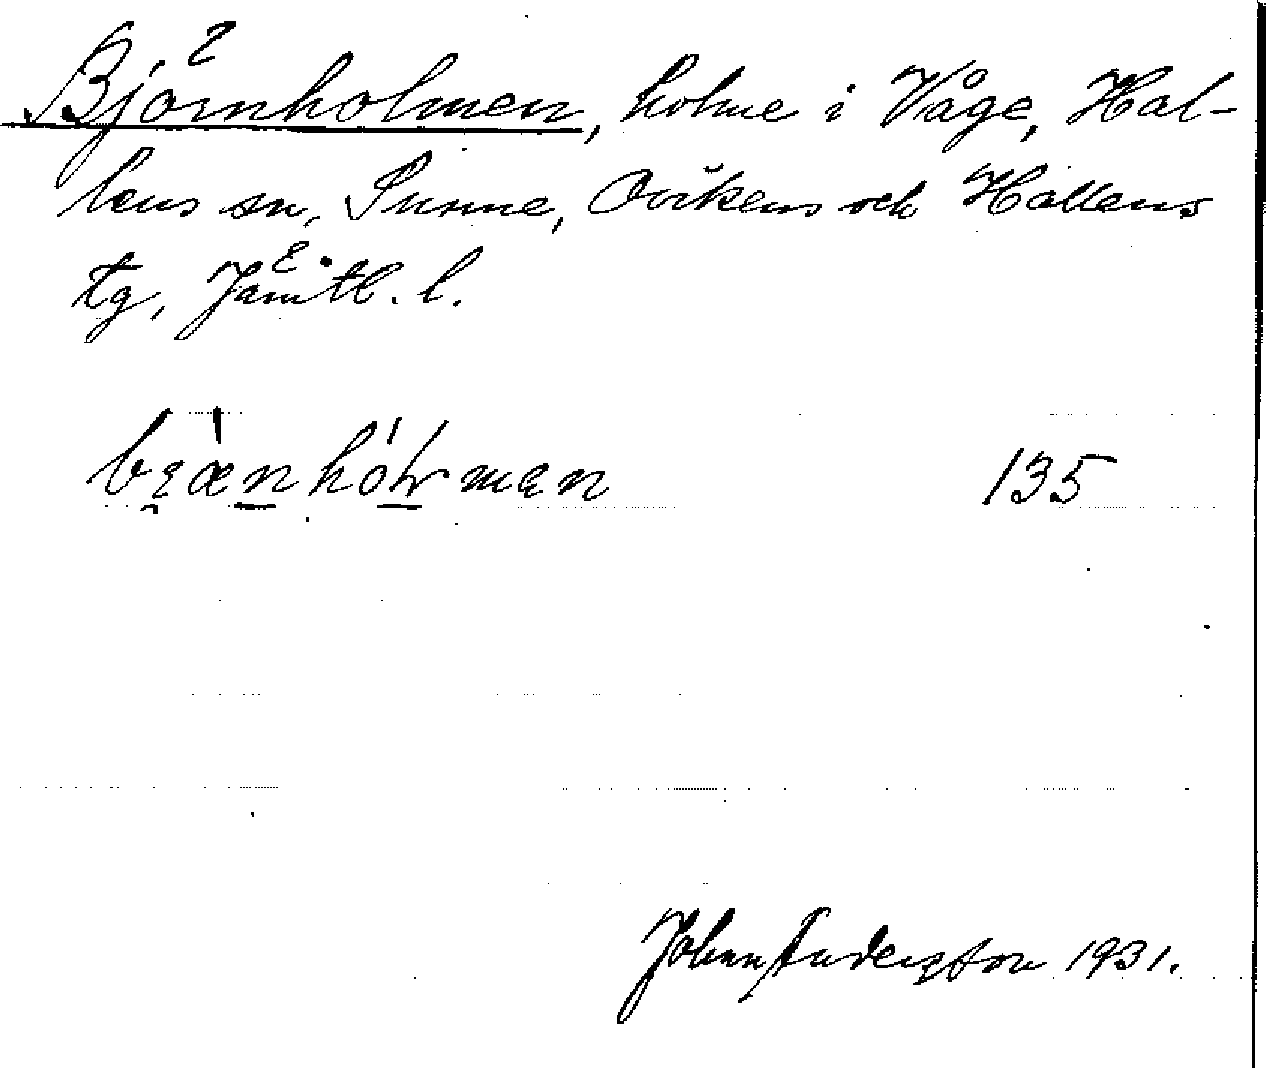 Björnholmen, holme i Våge, Hal-
lens sn, Sunne, Ovikens och Hallens
tg, Jämtl. l.
135
John Andersson 1931.